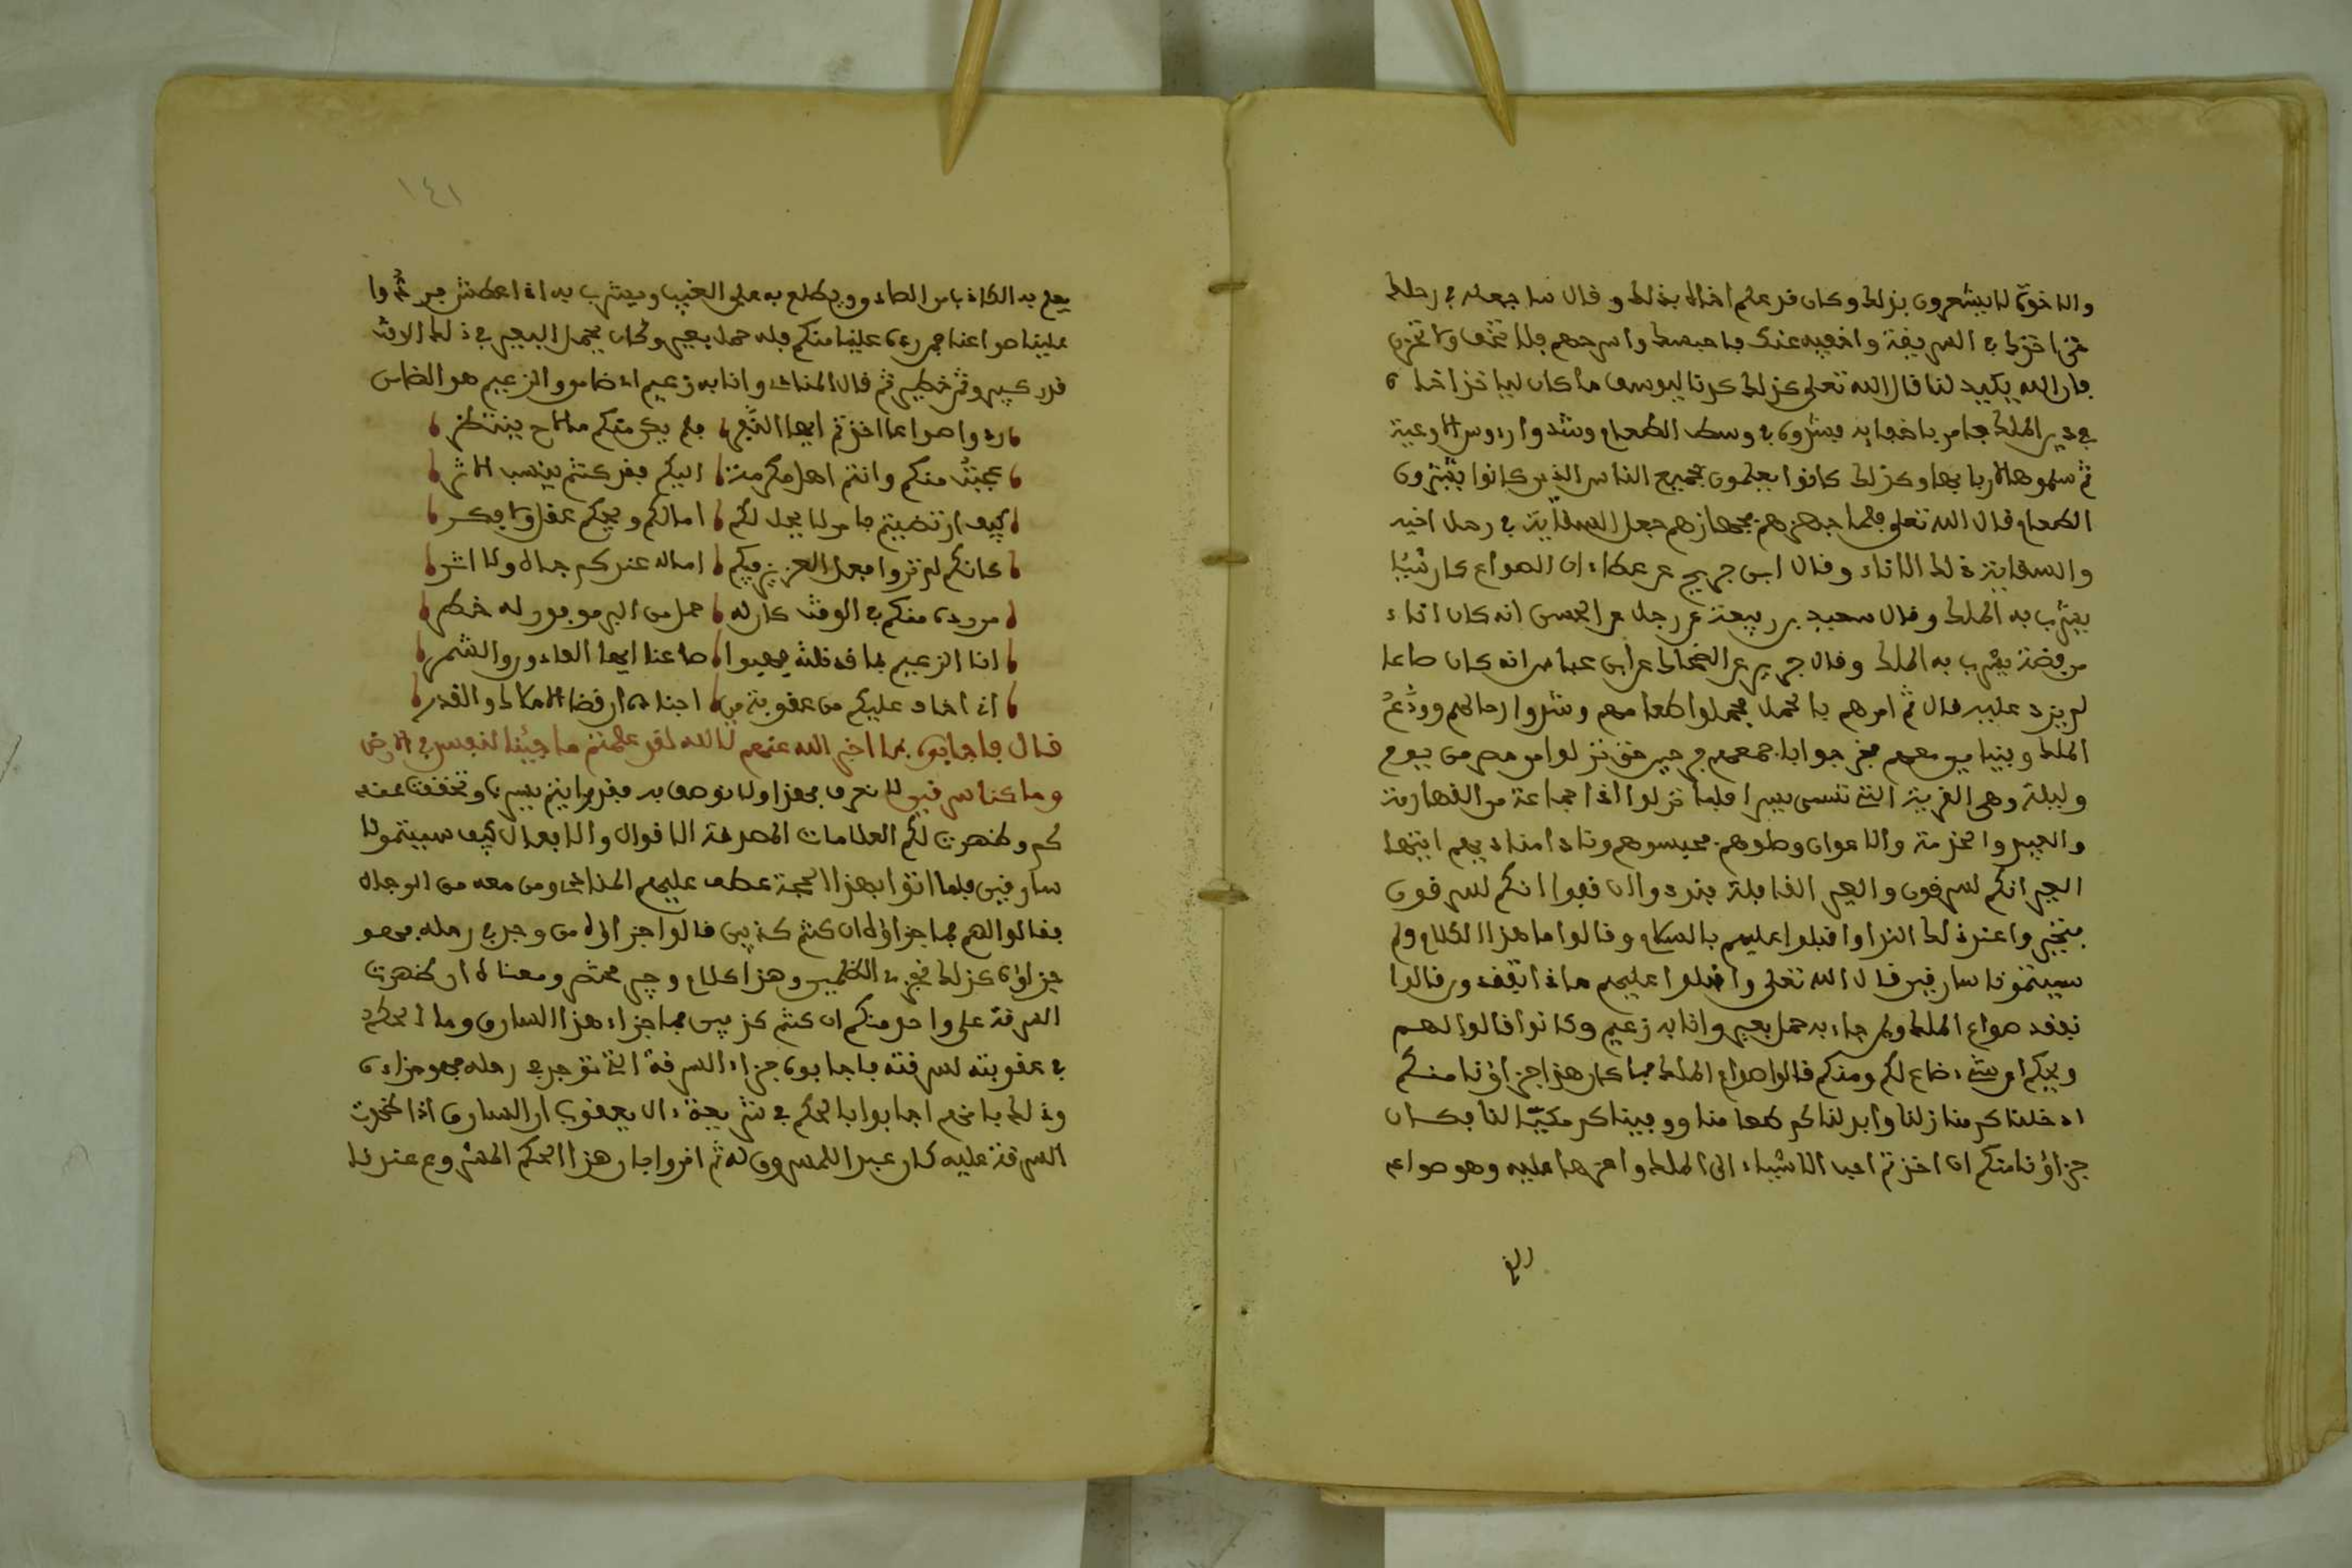 والاخوة لا يشعرون بذلك وكان قد علم اخاه بذلك وقال ساجعله في رحلك
حتى اخذك في السرقة واخفيه عندك فاحبسك واسرحهم فلا تخف ولا تحزن
فان الله يكيد لنا قال الله تعلى كذلك كدنا ليوسف ما كان لياخذ اخاه
في دين الملك فامر باخفايه في وسط الطعام وشدوا رءوس الاوعية
ثم سلموها لاربابها وكذلك كانوا يفعلون بجميع الناس الذين كانوا يشترون
الطعام قال الله تعلى فلما جهزهم بجهازهم جعل السقاية في رحل اخيه
والسقاية ذلك الاناء وقال ابن جريج عن عطاء ان الصواع كان شيئا
يشرب به الملك وقال سعيد بن ربيعة عن رجل عن الحسن انه كان اناء
من فضة يشرب به الملك وقال جرير عن الضحاك عن ابن عباس انه كان صاعا
لم يزد عليه قال ثم امرهم بالحمل فحملوا طعامهم وشدوا رحالهم وودعهم
الملك وبنيامين معهم فخرجوا باجمعهم حتى نزلوا من مصر من يوم
وليلة وهي القرية التي تسمى فلما نزلوا اذا جماعة من القهارمة
والعبيد والخدمة والاعوان وصلوهم فحبسوهم ونادا مناد فيهم ايتها
العير انكم لسرقون والعير القافلة انكم لسرقون
فعند ذلك النداء اقبلوا عليهم بالسلام وقالوا ما هذا الكلام ولم
سميتمونا سارقين قال الله تعلى واقبلوا عليهم ماذا تفقدون قالوا
نفقد صواع الملك ولمن جاء به حمل بعير وانا به زعيم وكانوا قالوا لهم
ويحكم اي شيء ضاع لكم ومنكم قالوا صواع الملك فما كان هذا جزاؤنا منكم
ادخلناكم منازلنا وابدلناكم طعامنا لنا فكان
جزاؤنا منكم ان اخذتم احب الاشياء الى الملك واعزها عليه وهو صواع
الذي
١٤١
يعلم به الكاذب من الصادق ويطلع به على الغيب ويشرب به اذا عطش
علينا صواعنا ممن منكم فله حمل بعير وكان يحمل البعير في ذلك الوقت
قدر كبير وثمن خطير ثم قال المناد وانا به زعيم اي ضامن والزعيم هو الضامن
ردوا صواعا اخذتم ايها النفر فلم يكن منكم ينتظر
عجبت منكم وانتم اهل مكرمة اليكم فقد كنتم
كيف ارتضيتم بامر لا يحل لكم امالكم ويحكم عقل ولا فكر
كانكم لم تروا فعل العزيز بكم اماله عندكم جاه ولا اثر
من رده منكم في الوقت كان له حمل من البر موفور له خطر
انا الزعيم بما قد قلته فهبوا صاعنا ايها الغادون والشمر
اني اخاف عليكم من عقوبة من
قال فاجابوه بما اخبر الله عنهم تالله لقد علمتم ما جئنا لنفسد في الارض
وما كنا سرقين لا نعرف بهذا ولا نوصف به فقد رايتم سيرنا وتحققت عنه
لكم وظهرت لكم العلامات المصدقة الاقوال والافعال كيف سميتمونا
سارقين فلما اتوا بهذا الحجة عطف عليهم المناد ومن معه من الوجلاه
فقالوا لهم فما جزاؤه ان كنتم كذبين قالوا جزاؤه من وجد في رحله فهو
جزاؤه كذلك نجزي الظلمين وهذا كلام وجيز مختصر ومعناه ان ظهرت
السرقة على واحد منكم ان كنتم كذبين فما جزاء هذا السارق وما الحكم
في عقوبته لسرقته فاجابوه جزاء السرقة التي توجد في رحله فهو جزاءه
وذلك بانهم اجابوا بالحكم في شريعة ءال يعقوب ان السارق اذا ظهرت
السرقة عليه كان عبدا للمسروق له ثم اقروا بان هذا الحكم المشروع عندنا